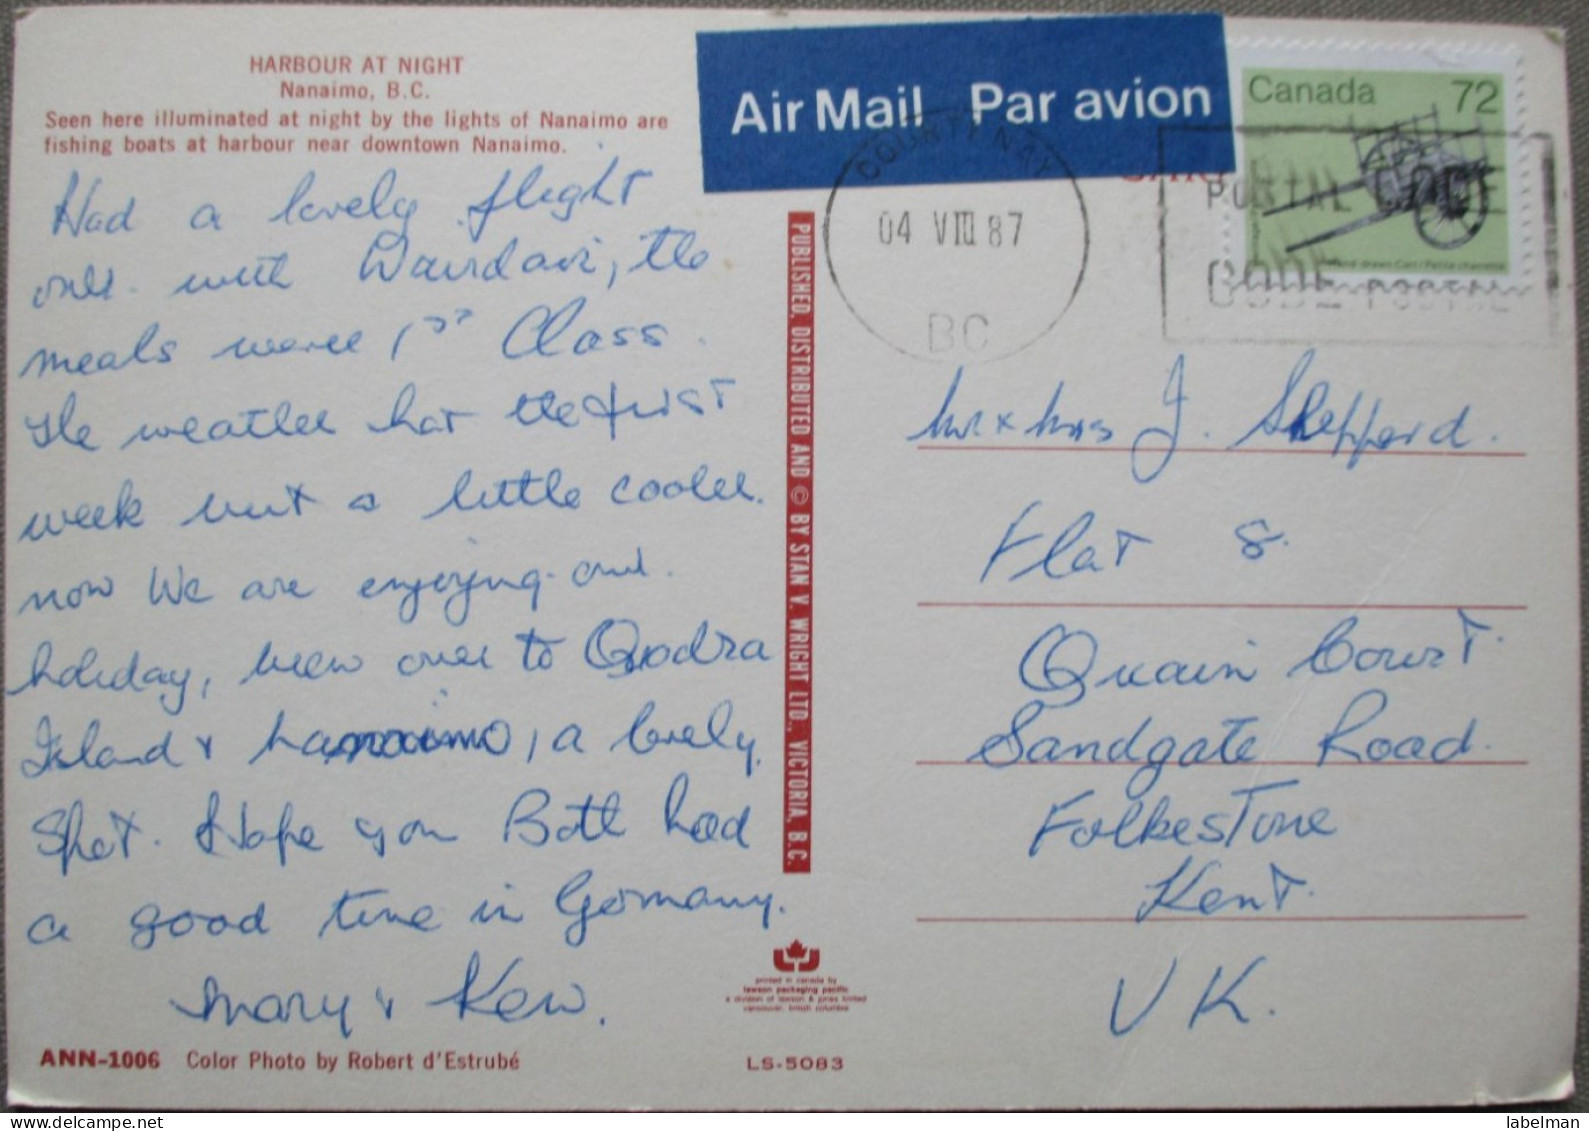 HARBOUR AT NIGHT
Nanaimo, B.C.
Seen here illuminated at night by the lights of Nanaimo are
fishing boats at harbour near downtown Nanaimo.
Had a lovely flight
over. with Wardair, the
meals were 1st Class.
The weather hot the first
week but a little cooler.
now We are enjoying our
holiday, been over to Quadra
Island & Nanaimo, a lovely
Spot. Hope you Both had
a good time in Germany.
Mary & Ken.
ANN-1006 Color Photo by Robert d'Estrubé
PUBLISHED, DISTRIBUTED AND © BY STAN V. WRIGHT LTD., VICTORIA, B.C.
printed in canada by
lawson packaging pacific
a division of lawson & jones limited
vancouver, british columbia
LS-5083
Air Mail Par avion
Canada 72
Hand drawn Cart / Petite charrette
COURTENAY
04 VIII 87
BC
POSTAL CODE
CODE POSTAL
Mr & Mrs J. Shepperd.
Flat 8.
Quain Court.
Sandgate Road.
Folkestone
Kent.
UK.
labelman